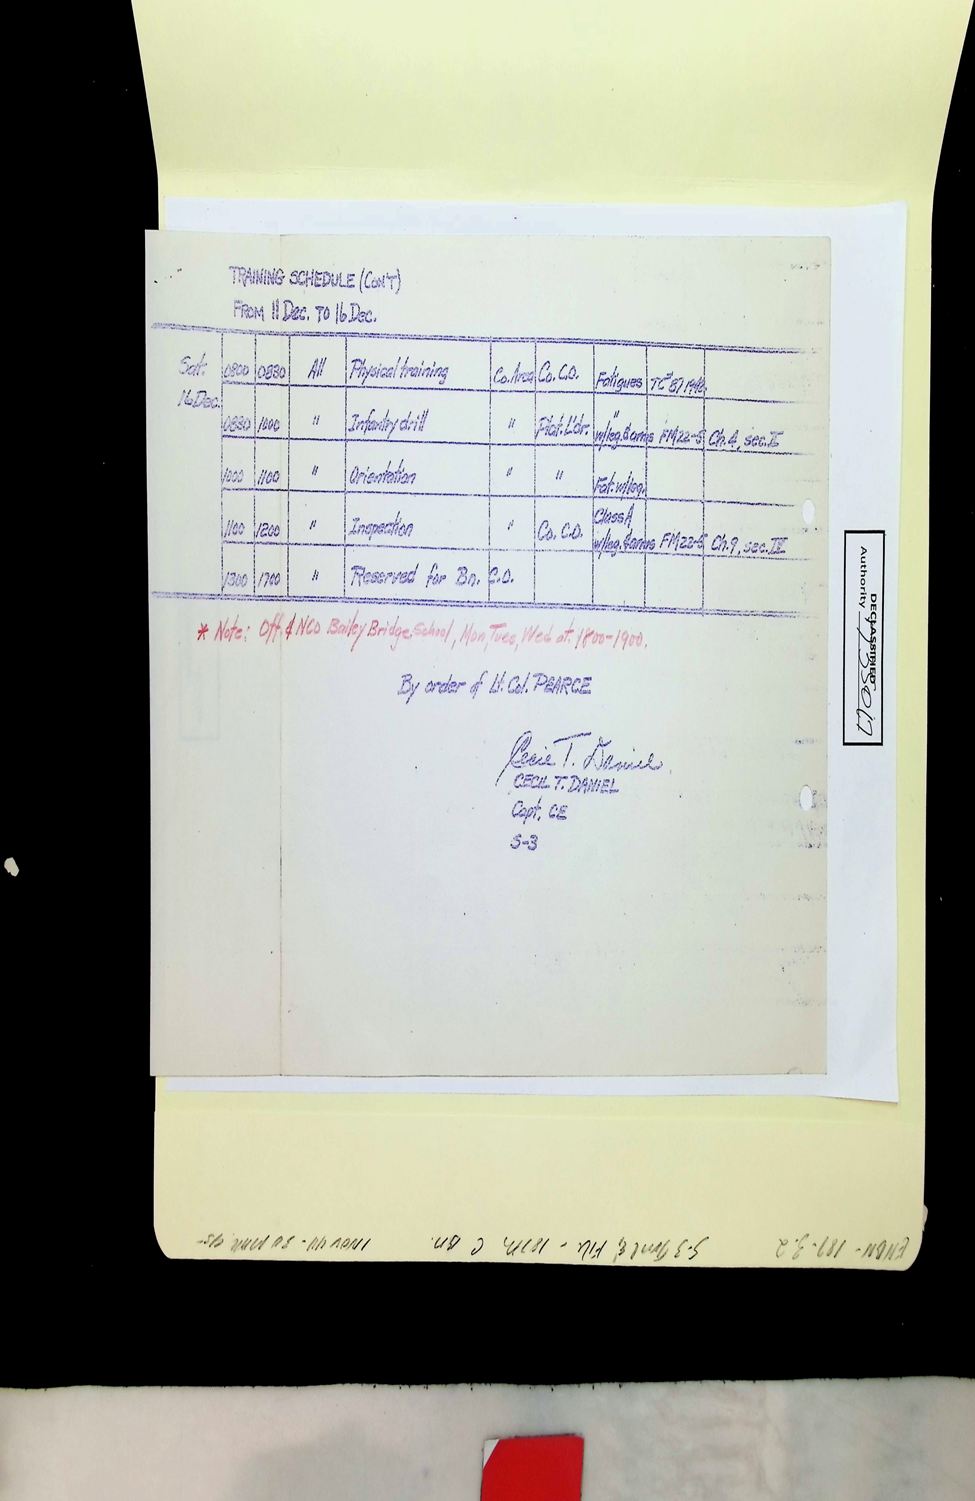 TRAINING SCHEDULE (CON'T)
FROM 11 Dec. TO 16 Dec.
Sat. 0800 0830 All Physical training Co. Area Co. C.O. Fatigues TC #87 1942
16 Dec. 0830 1000 " Infantry drill " Plat. Ldr. " w/leg. & arms FM 22-5 Ch. 4, sec. II
1000 1100 " Orientation " " Fat. w/leg.
1100 1200 " Inspection " Co. C.O. Class A w/leg. & arms FM 22-5 Ch. 9, sec. III
1300 1700 " Reserved for Bn. C.O.
* Note: Off. & NCO Bailey Bridge School, Mon, Tues, Wed at. 1800-1900.
By order of Lt. Col. PEARCE
Cecil T. Daniel
CECIL T. DANIEL
Capt. CE
S-3
DECLASSIFIED
Authority
ENBN-187-3.2